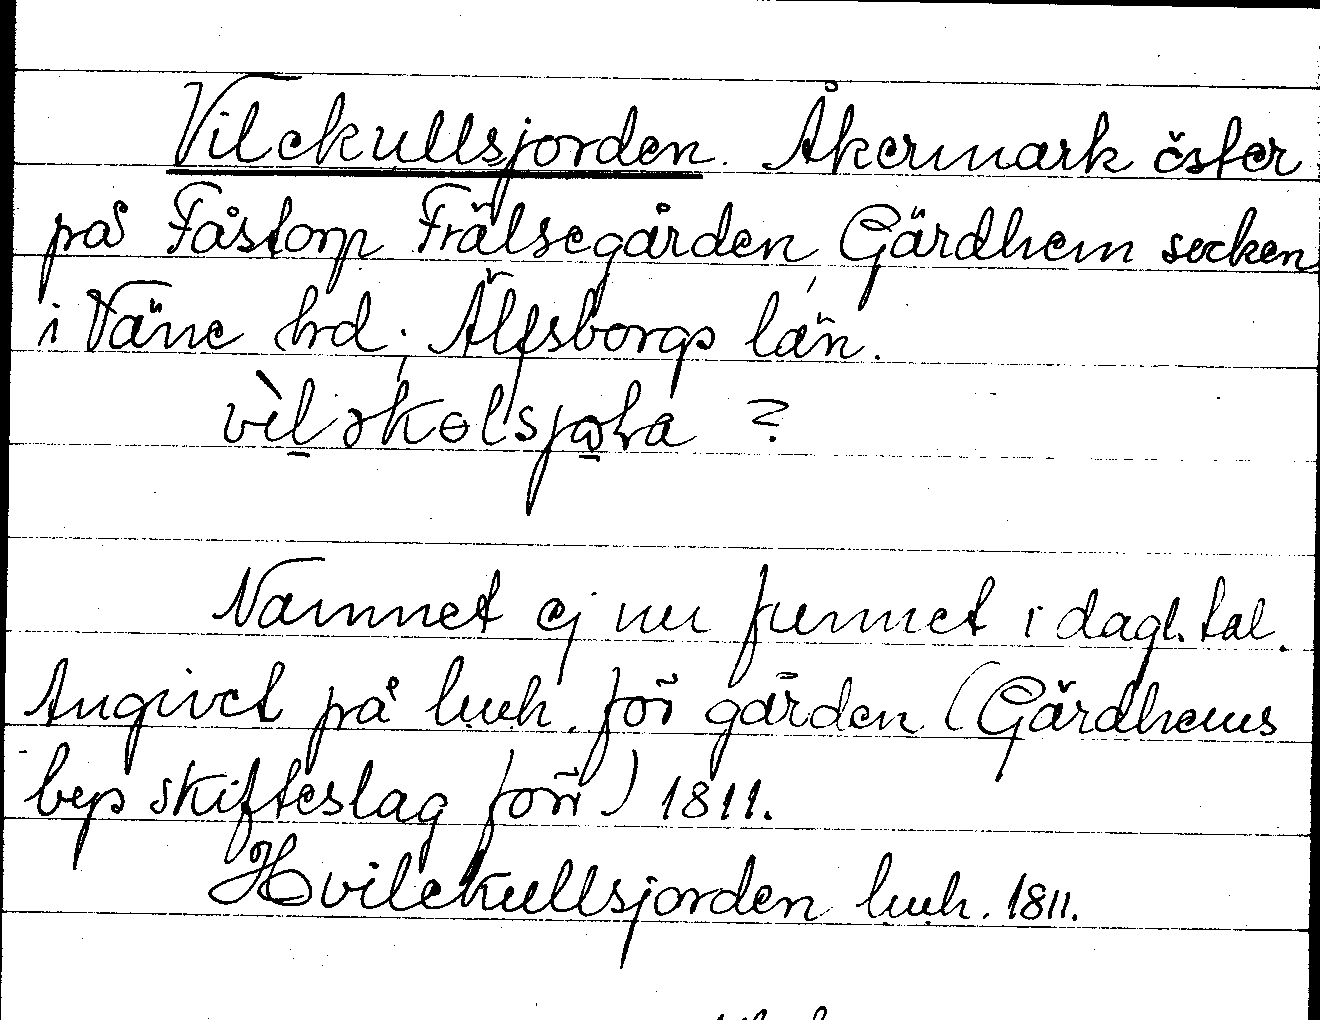 Vilekullsjorden. Åkermark öster
på Fåstorp Frälsegården, Gärdhem socken
i Väne hrd, Älfsborgs län.
Namnet ej nu funnet i dagl. tal.
Angivet på lmh. för gården (Gärdhems
bys skifteslag förr) 1811.
Hvilekullsjorden lmh. 1811.